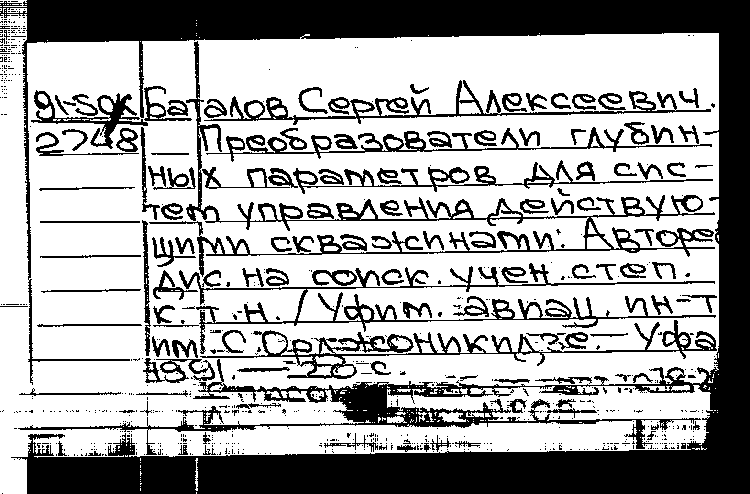 91-50К Баталов, Сергей Алексеевич.
2748 Преобразователи глубин-
ных параметров для сис-
тем управления действую-
щими скважинами: Авторе
дис. на соиск. учен. степ.
к. т. н. / Уфим. авиац. ин-т
им. С. Орджоникидзе. — Уфа
1991. — 20 с.
Список